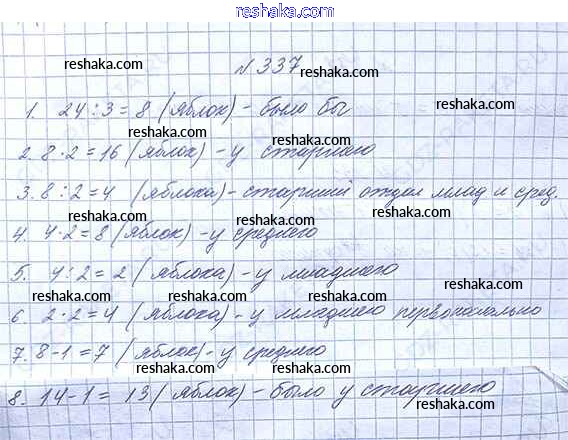 reshaka.com
reshaka.com № 337 reshaka.com
1. 24 : 3 = 8 (яблок) - было бы
reshaka.com reshaka.com
2. 8 · 2 = 16 (яблок) - у старшего
reshaka.com
3. 8 : 2 = 4 (яблока) - старший отдал млад и сред.
reshaka.com reshaka.com reshaka.com
4. 4 · 2 = 8 (яблок) - у среднего
reshaka.com
5. 4 : 2 = 2 (яблока) - у младшего
reshaka.com reshaka.com reshaka.com
6. 2 · 2 = 4 (яблока) - у младшего первоначально
reshaka.com
7. 8 - 1 = 7 (яблок) - у среднего
reshaka.com reshaka.com
8. 14 - 1 = 13 (яблок) - было у старшего
reshaka.com reshaka.com